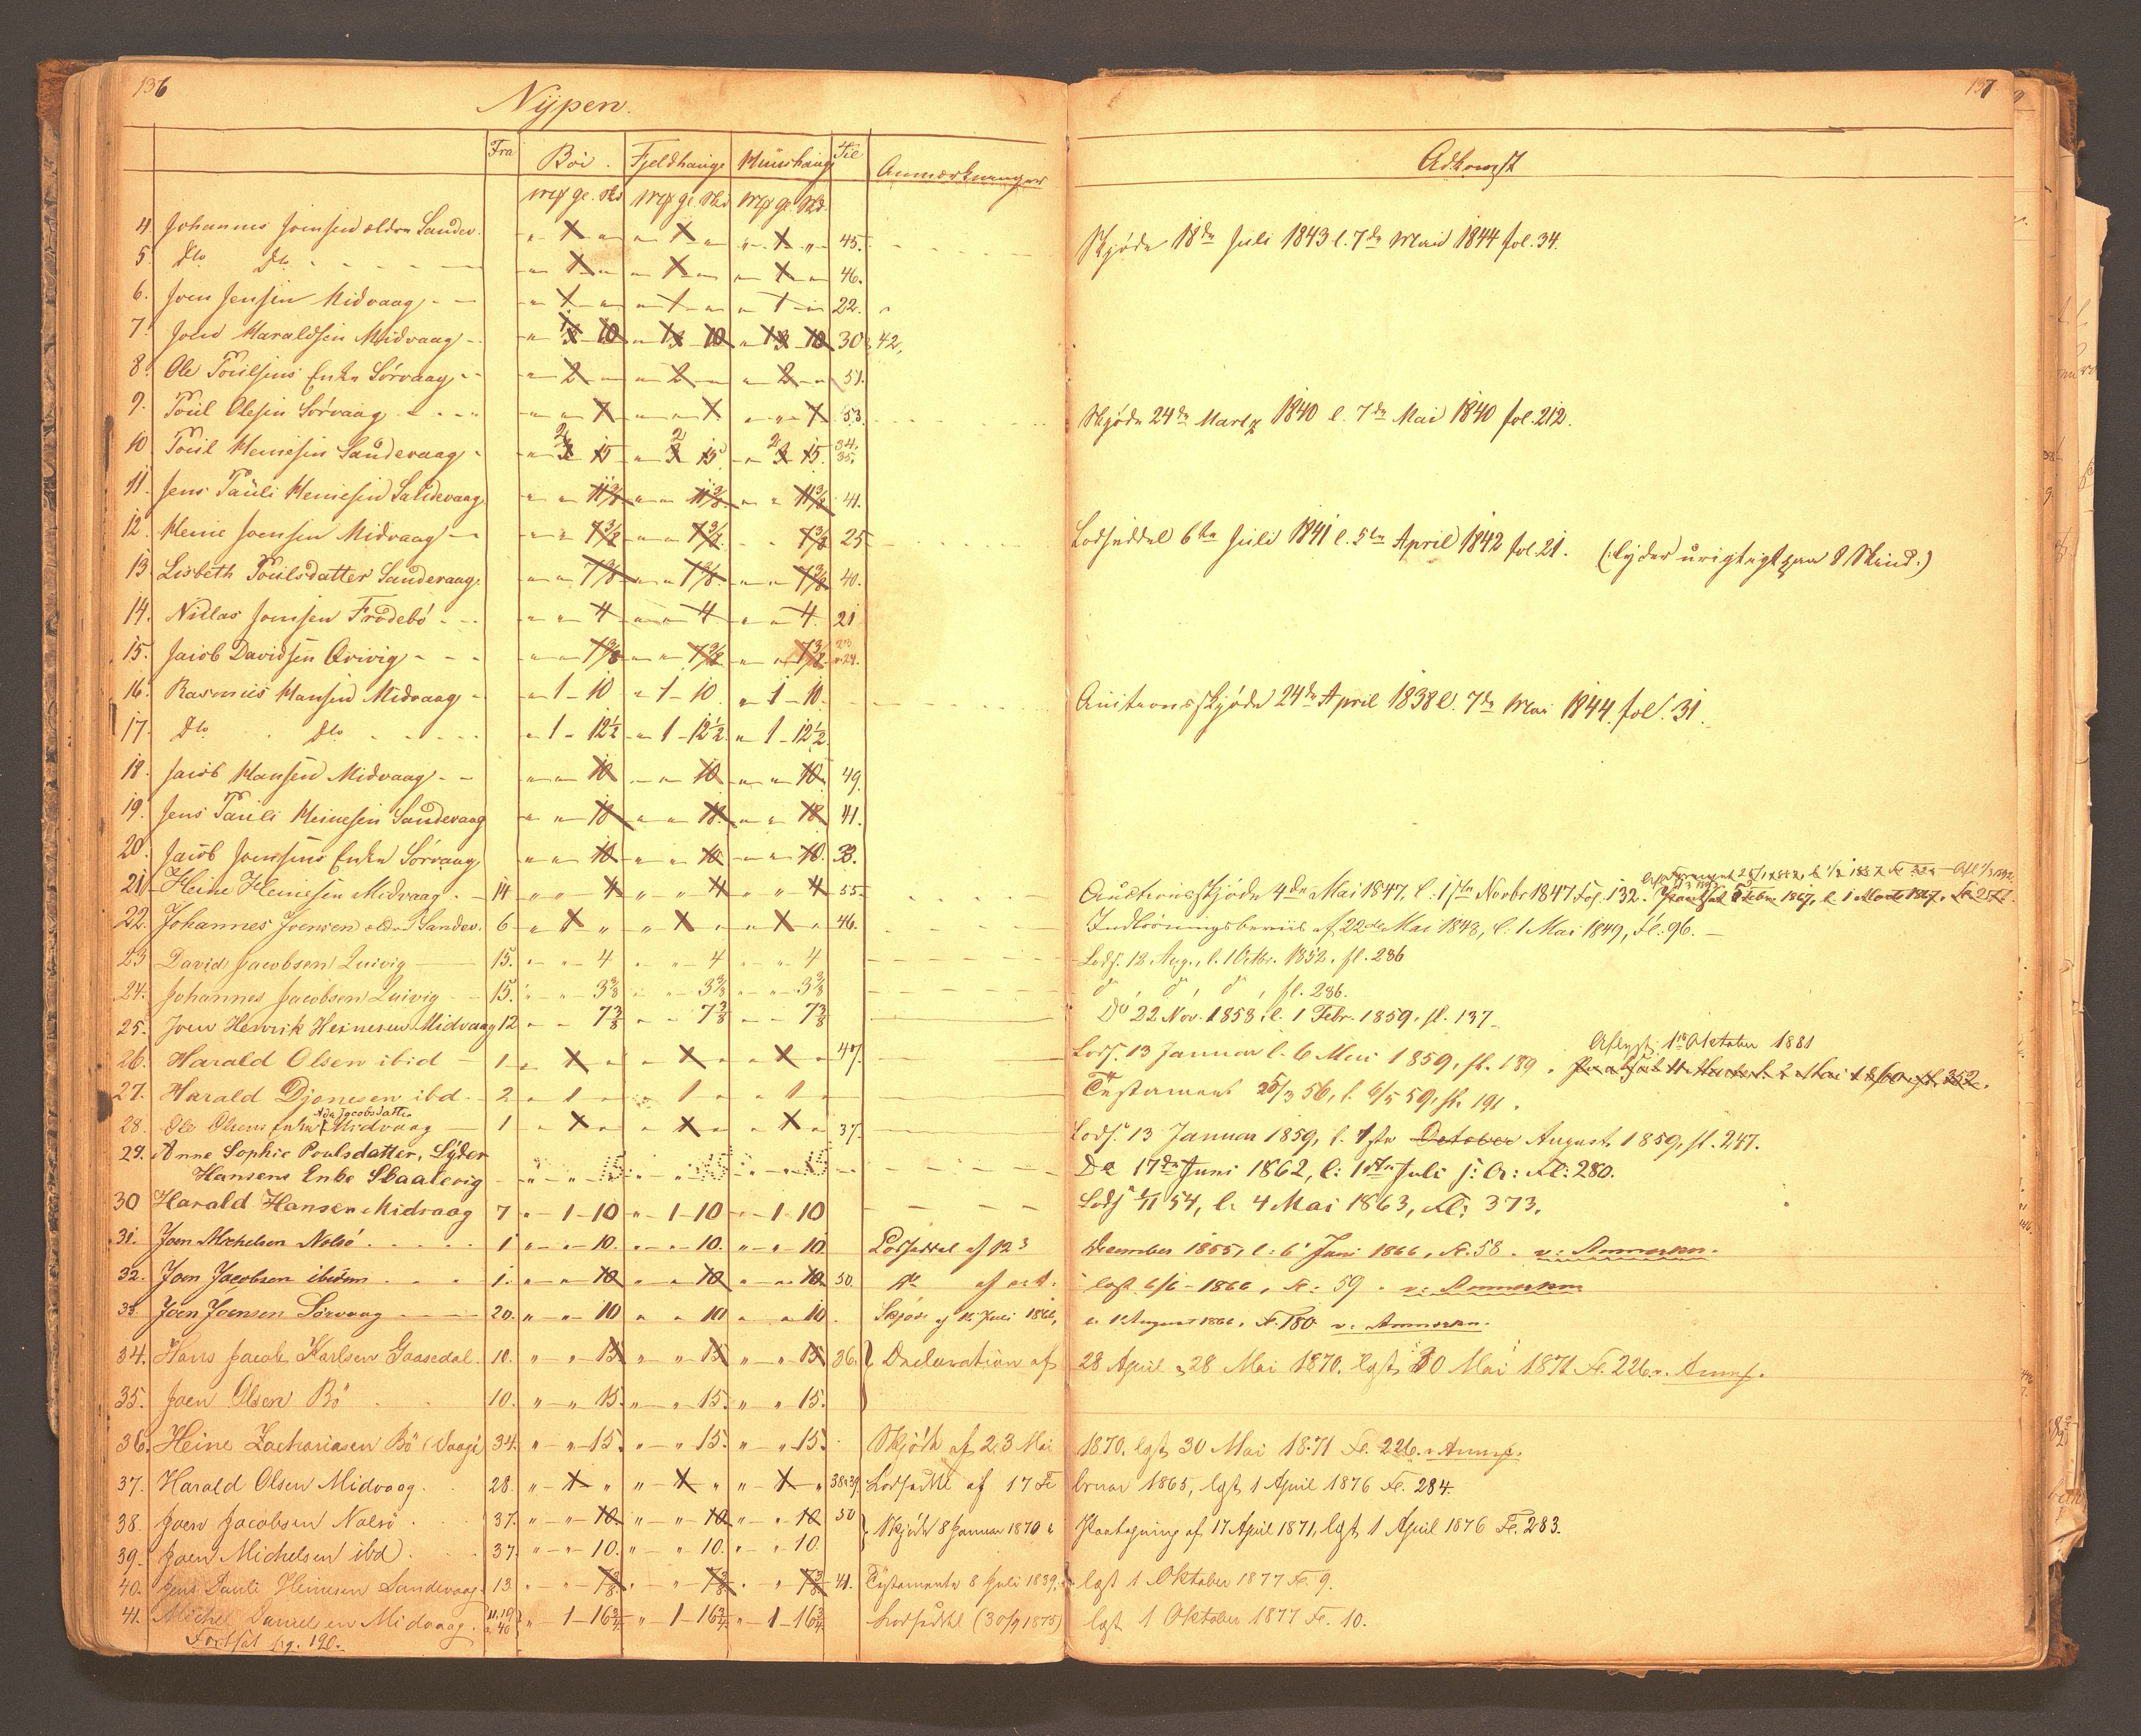 136
137
Nypen.
Fra Böi. Fjeldhauge Huushauge Til Anmærkninger
Adkomst
Mk Gl. Skd Mk Gl. Skd Mk Gl. Skd
4. Johannes Joensen ældre Sandev. " 1 " " 1 " " 1 " 45. Skjøde 18de Juli 1843 l. 7de Mai 1844 fol. 34.
5. Do Do " 1 " " 1 " " 1 " 46.
6. Joen Jensen Midvaag " 1 " " 1 " " 1 " 22.
7. Joen Haraldsen Midvaag 10 10 10 30 & 42,
8. Ole Poulsens Enke Sörvaag " 2 " " 2 " " 2 " 51.
9. Poul Olesen Sörvaag " " 7 " " 7 " " 7 53. Skjøde 24de Marts 1840 l. 7de Mai 1840 fol. 212.
10 Poul Heinesen Sandevaag " 2 15 " 2 15 " 2 15. 34. 35.
11. Jens Pauli Heinesen Sandevaag " " 11 3/8 " " 11 3/8 " " 11 3/8 41.
12. Heine Joensen Midvaag " " 7 3/8 " " 7 3/8 " " 7 3/8 25 Lodseddel 6te Juli 1841 l. 5te April 1842 fol. 21. (: lyder urigtigt paa 8 Skind.)
13. Lisbeth Poulsdatter Sandevaag. " " 7 3/8 " " 7 3/8 " " 7 3/8 40.
14. Niclas Joensen Frodebö " " 4 " " 4 " " 4. 21
15. Jacob Davidsen Qvivig " " 7 3/8 " " 7 3/8 " " 7 3/8 23 & 24.
16. Rasmus Hansen Midvaag " 1 10 " 1 10 " 1 10. Auctionsskjøde 24de April 1838 l. 7de Mai 1844 fol. 31.
17. Do Do " 1 12 1/2 " 1 12 1/2 " 1 12 1/2
18. Jacob Hansen Midvaag " " 10 " " 10 " " 10. 49.
19. Jens Pauli Heinesen Sandevaag " " 18 " " 18 " " 18 41.
20. Jacob Joensens Enke Sörvaag " " 10 " " 10 " " 10. 33.
21. Heine Heinesen Midvaag 14 " " 4 " " 4 " " 4 55 Auctionsskjøde 4de Mai 1847, l. 1ste Novbr 1847 Fol. 132.
22. Johannes Joensen ældre Sandev. 6 " 1 " " 1 " " 1 " 46. Indløsningsbeviis af 22de Mai 1848, l. 1 Mai 1849, Fl: 96.
23 David Jacobsen Quivig 15. " " 4 " " 4 " " 4 Lods. 12 Aug., l. 1 Octbr. 1852. fl. 236
24. Johannes Jacobsen Quivig 15. " " 3 3/8 " " 3 3/8 " " 3 3/8 do do do fl. 236.
25. Joen Henrik Heinesen Midvaag 12 " " 7 3/8 " " 7 3/8 " " 7 3/8 Do 22 Nov. 1858, l. 1 Febr. 1859, fl. 137
26. Harald Olsen ibid 1 " 1 " " 1 " " 1 " 47. Lods. 13 Januar l. 6 Mai 1859, fl. 189. Aflyst 1ste Oktober 1881
27. Harald Djonesen ibd. 2 " 1 " " 1 " " 1 " Testament 25/3 56, l. 6/5 59, fl. 191.
28. Ole Olsens Enke Midvaag 1 " 1 " " 1 " " 1 " 37. Lods. 13 Januar 1859, l. 1ste October August 1859, fl. 247.
29. Anne Sophie Poulsdatter, Lyder
Hansens Enke Skaalevig " " 15 " " 15 " " 15 Do 17de Juni 1862, l: 1ste Juli s: A: Fl: 280.
30 Harald Hansen Midvaag 7 " 1 10 " 1 10 " 1 10 54, l. 4 Mai 1863, Fl: 373.
31. Joen Michelsen Nolsö 1 " " 10. " " 10. " " 10 Lodseddel af 12 December 1855, l: 6 Juni 1866, Fl. 58. v: Anmerkn.
32. Joen Jacobsen ibidem 1. " " 10 " " 10 " " 10 50. lagt 6/6 1866, Fl: 59. v: Anmerkn
33. Joen Joensen Sörvaag 20. " " 10 " " 10 " " 10. Skjöde af 16 Juli 1866, l. 1 August 1866, Fl. 180. v. Anmerkn.
34. Hans Jacob Karlsen Gaasedal. 10. " " 15 " " 15 " " 15 36. Declaration af 28 April & 28 Mai 1870. lgst, 30 Mai 1871 Fl. 226. v. Anmk.
35. Joen Olsen Bö 10. " " 15. " " 15. " " 15.
36. Heine Zachariasen Bö (Vaagö) 34. " " 15. " " 15. " " 15. Skjöde af 23 Mai 1870. lgst, 30 Mai 1871 Fl. 226. v. Anmk.
37. Harald Olsen Midvaag. 28. " 1 " " 1 " " 1 " 38 & 39. Lodseddel af 17 Februar 1865, lgst 1 April 1876 Fl. 284.
38. Joen Jacobsen Nolsö 37. " " 10. " " 10. " " 10 50 Skjöde 8 Januar 1870 & Paategning af 17 April 1871, lgst, 1 April 1876 Fl. 283.
39. Joen Michelsen ibd. 37. " " 10. " " 10. " " 10.
40. Jens Pauli Heinesen Sandevaag 13. " " 7 3/8 " " 7 3/8 " " 7 3/8 41. Testamente 8 Juli 1839, lgst 1 Oktober 1877 Fl. 9.
41. Michel Danielsen Midvaag. 11.19 & 40 " 1 16 3/4 " 1 16 3/4 " 1 16 3/4 Lodseddel (30/9 1875) lgst 1 Oktober 1877 Fl. 10.
Fortsat pg. 190.